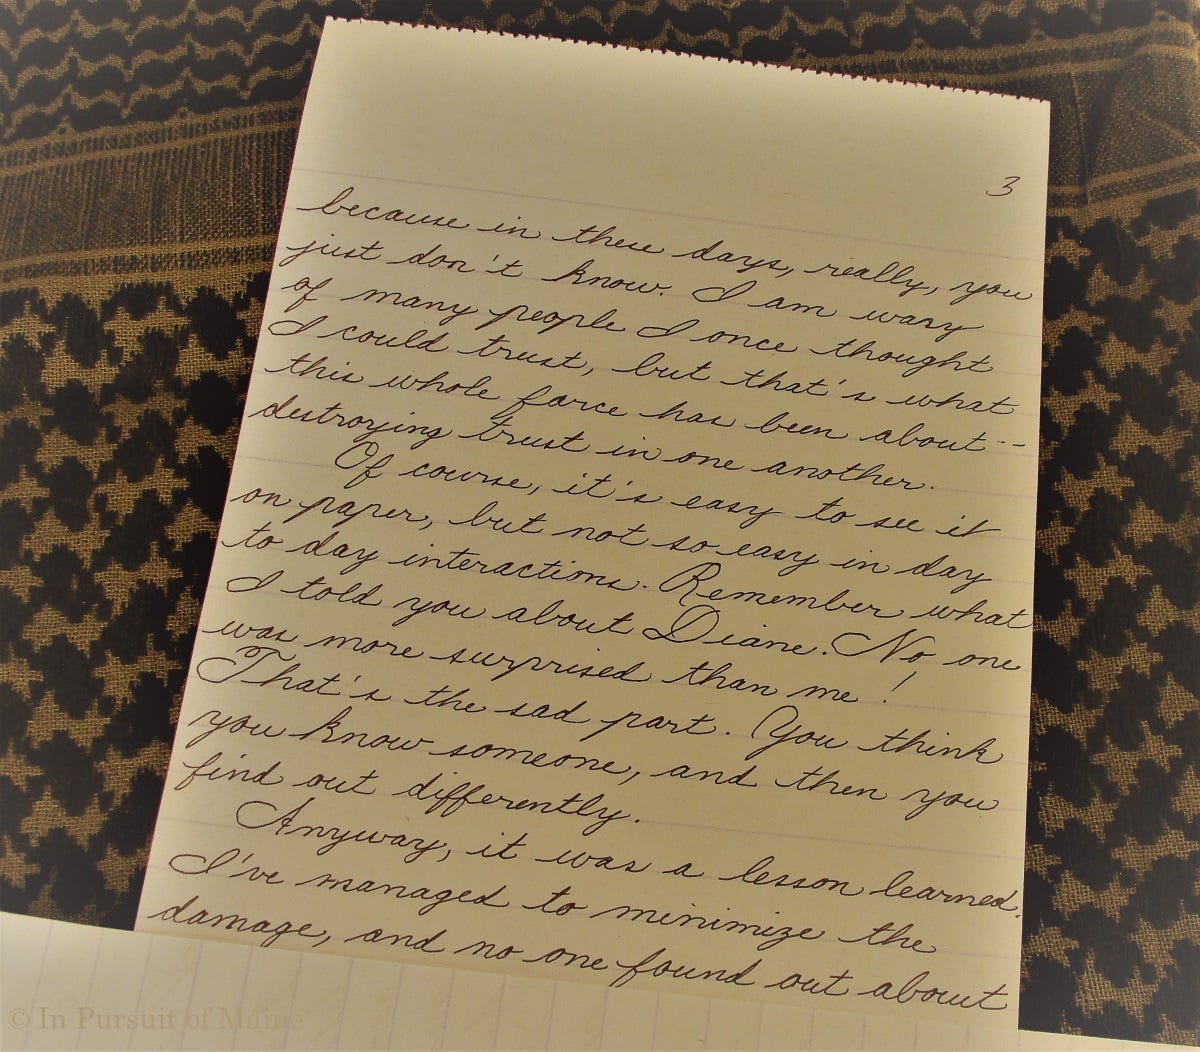 3
because in these days, really, you
just don't know. I am wary
of many people I once thought
I could trust, but that's what
this whole farce has been about --
destroying trust in one another.
Of course, it's easy to see it
on paper, but not so easy in day
to day interactions. Remember what
I told you about Diane. No one
was more surprised than me!
That's the sad part. You think
you know someone, and then you
find out differently.
Anyway, it was a lesson learned.
I've managed to minimize the
damage, and no one found out about
© In Pursuit of Maine